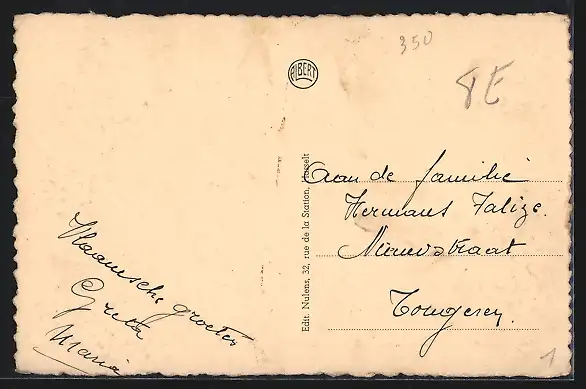 350
8E
ALBERT
Aan de familie
Hermans Jalize.
Nieuwstraat
Tongeren
Edit. Nulens, 32, rue de la Station, Hasselt
Vlaamsche groeten
Greta
Maria
1